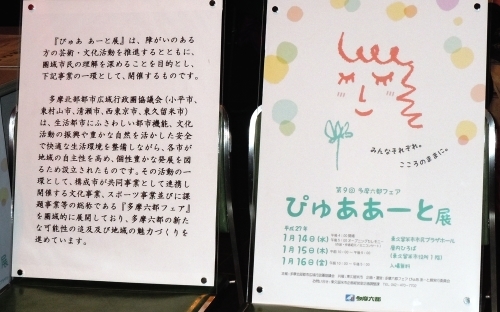 『ぴゅあ あーと展』は、障がいのある
方の芸術・文化活動を推進するとともに、
圏域市民の理解を深めることを目的とし、
下記事業の一環として、開催するものです。
多摩北部都市広域行政圏協議会（小平市、
東村山市、清瀬市、西東京市、東久留米市）
は、生活都市にふさわしい都市機能、文化
活動の振興や豊かな自然を活かした安全
で快適な生活環境を整備しながら、各市が
地域の自主性を高め、個性豊かな発展を図
るため設立されたものです。その活動の一
環として、構成市が共同事業として連携し
開催する文化事業、スポーツ事業並びに課
題事業等の総称である『多摩六都フェア』
を圏域的に展開しており、多摩六都の新た
な可能性の追及及び地域の魅力づくりを
進めています。
みんなそれぞれ。
こころのままに。
第9回 多摩六都フェア
ぴゅああーと展
平成27年
1月14日(水)
1月15日(木)
1月16日(金)
東久留米市市民プラザホール
屋内ひろば
(東久留米市役所1階)
入場無料
多摩六都